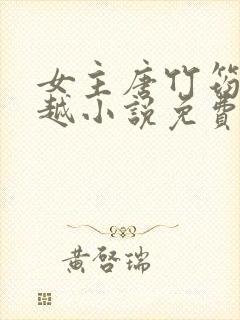 女主唐竹筠
越小說免費
黃啓瑞